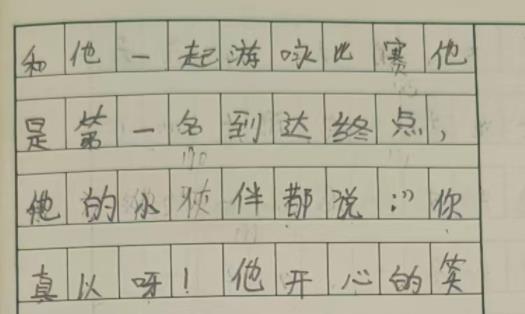 和他一起游咏比赛他
是第一名到达终点,
他的小伙伴都说:"你
真以呀!他开心的笑